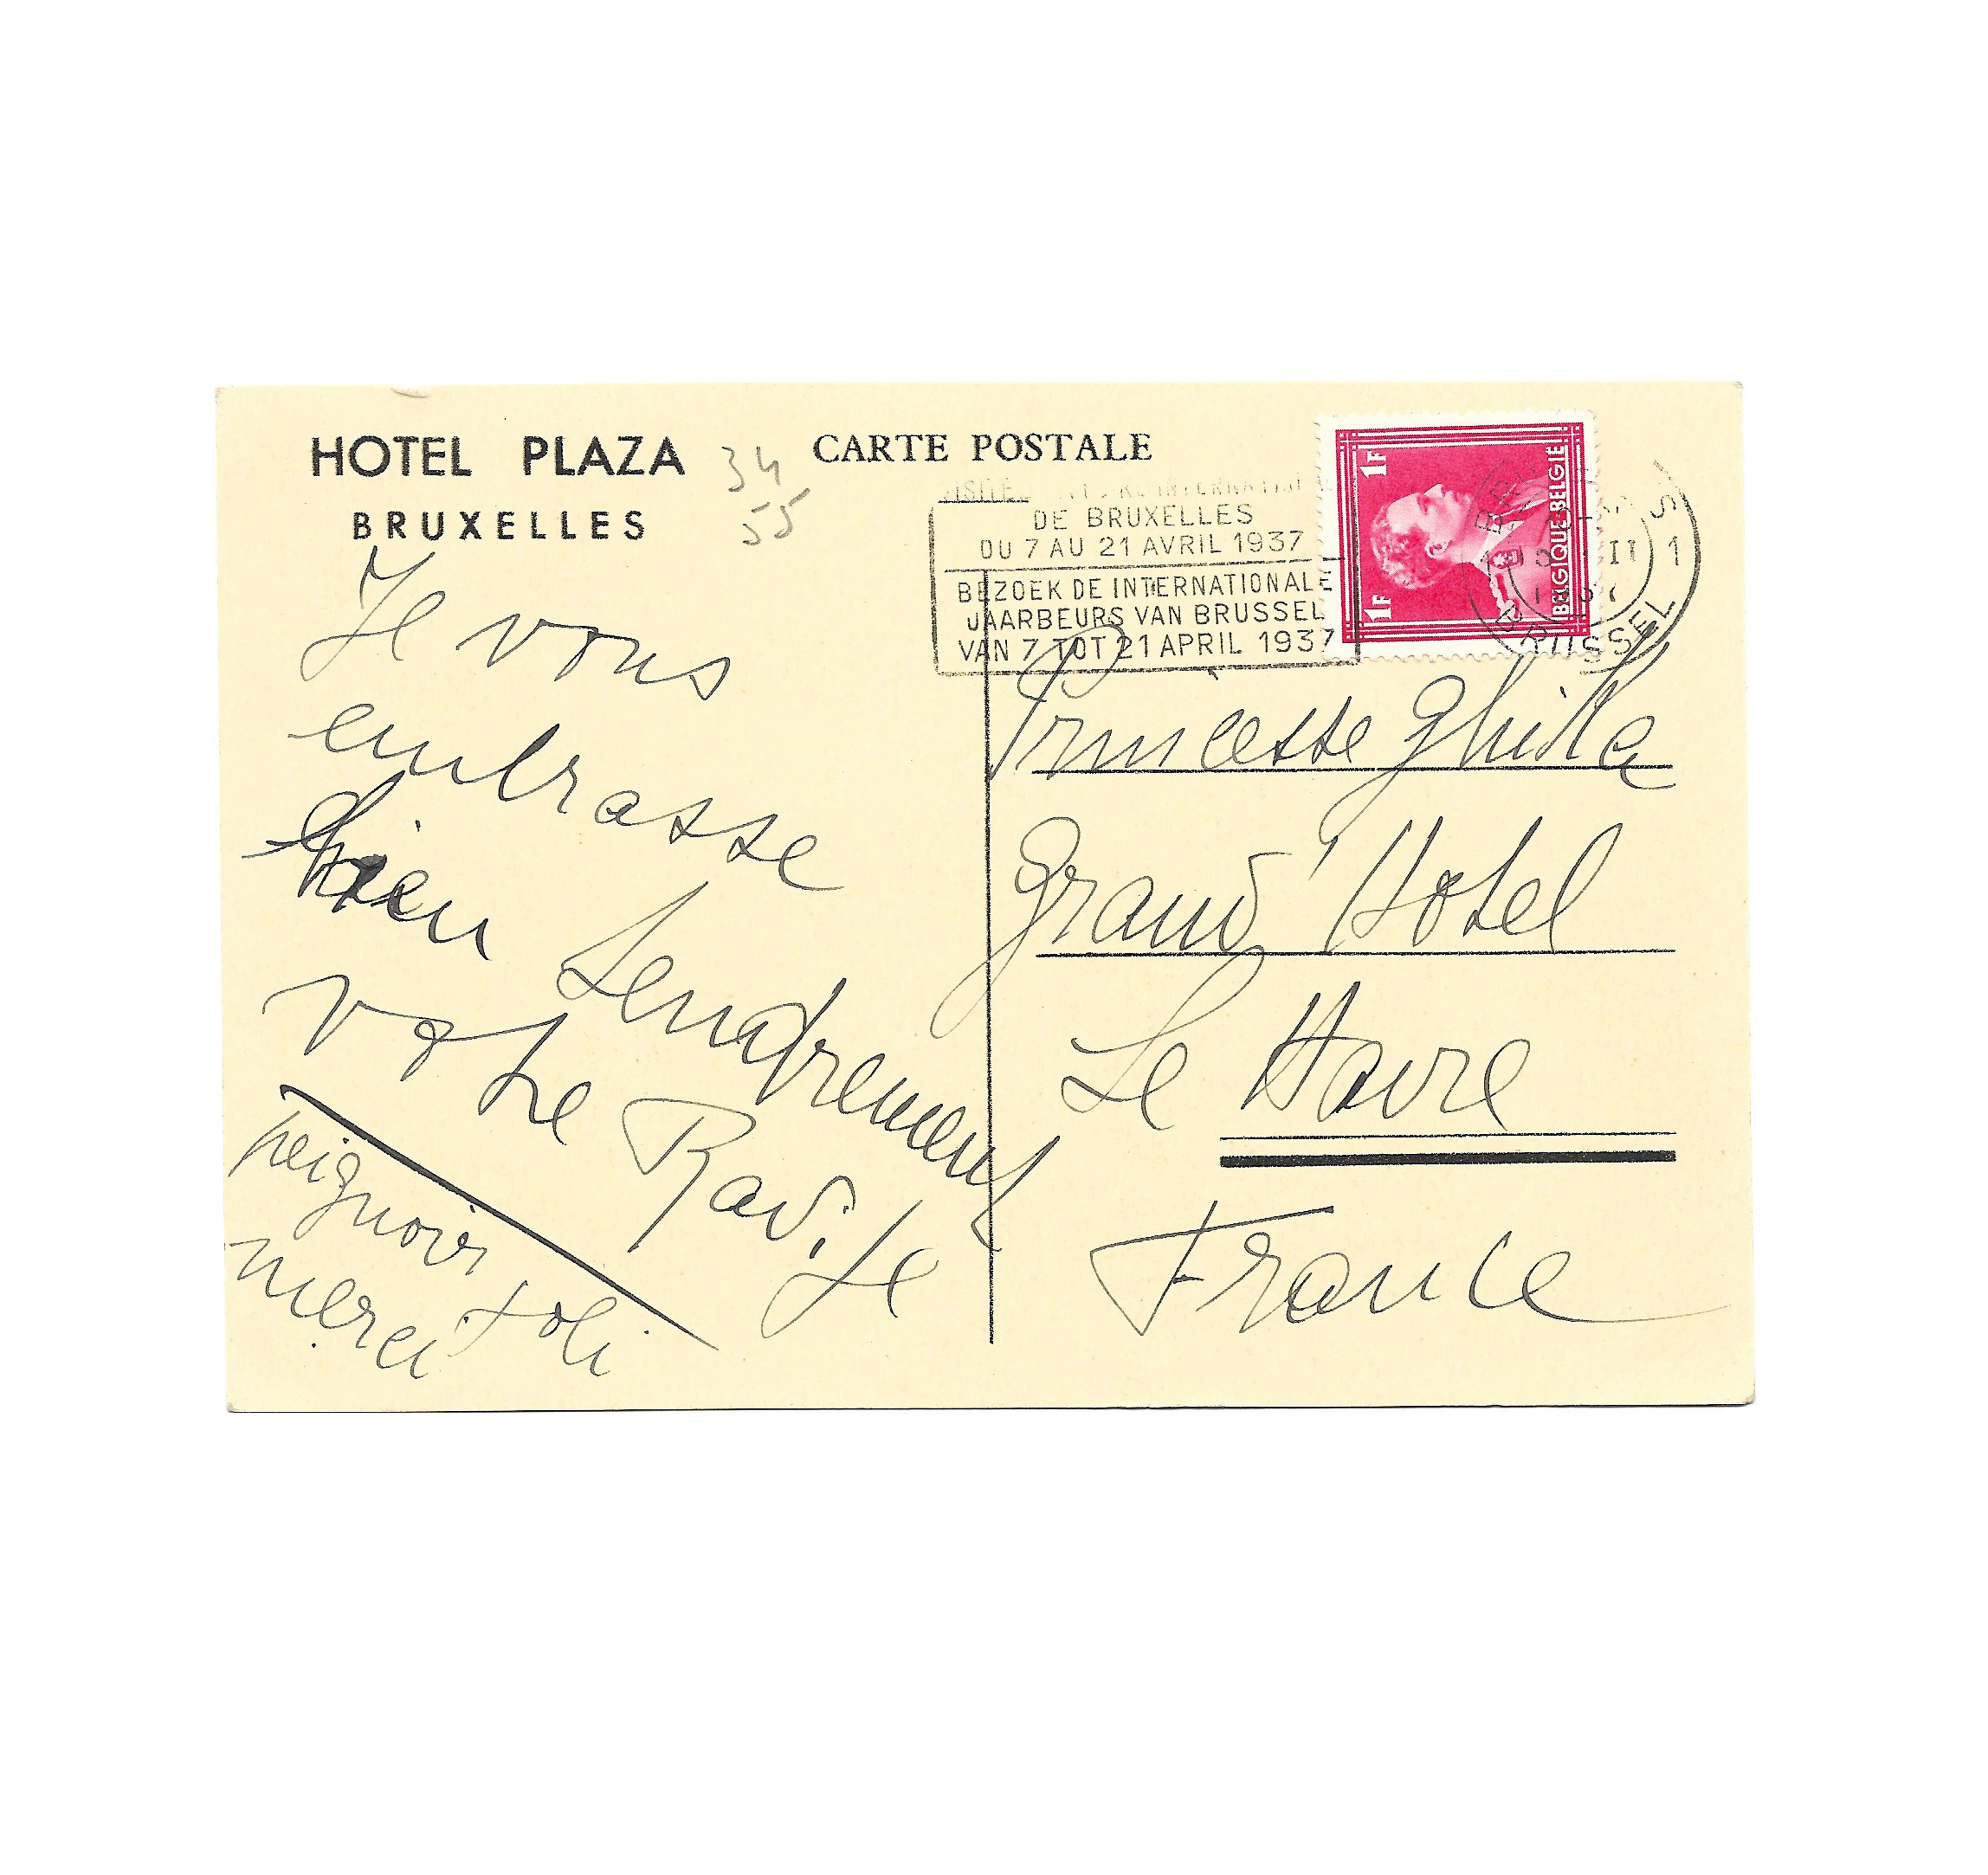 HOTEL PLAZA
BRUXELLES
34
55
CARTE POSTALE
DE BRUXELLES
DU 7 AU 21 AVRIL 1937
BEZOEK DE INTERNATIONALE
JAARBEURS VAN BRUSSEL
VAN 7 TOT 21 APRIL 1937
1F
1F
BELGIQUE-BELGIË
BRUSSEL
1
Je vous
embrasse
bien tendrement
votre
peignoir joli
merci
Princesse Ghika
Grand Hotel
Le Havre
France